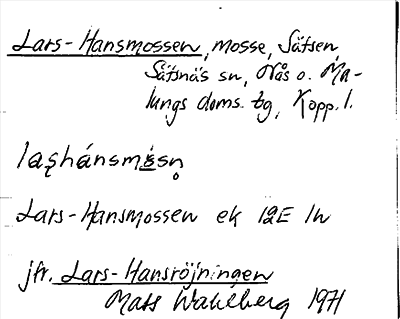 Lars-Hansmossen, mosse, Sätsen,
Särsnäs sn, Nås o. Ma-
lungs doms. tg, Kopp. l.
Lars-Hansmossen ek 12E 1h
jfr. Lars-Hansröjningen
Mats Wahlberg 1971